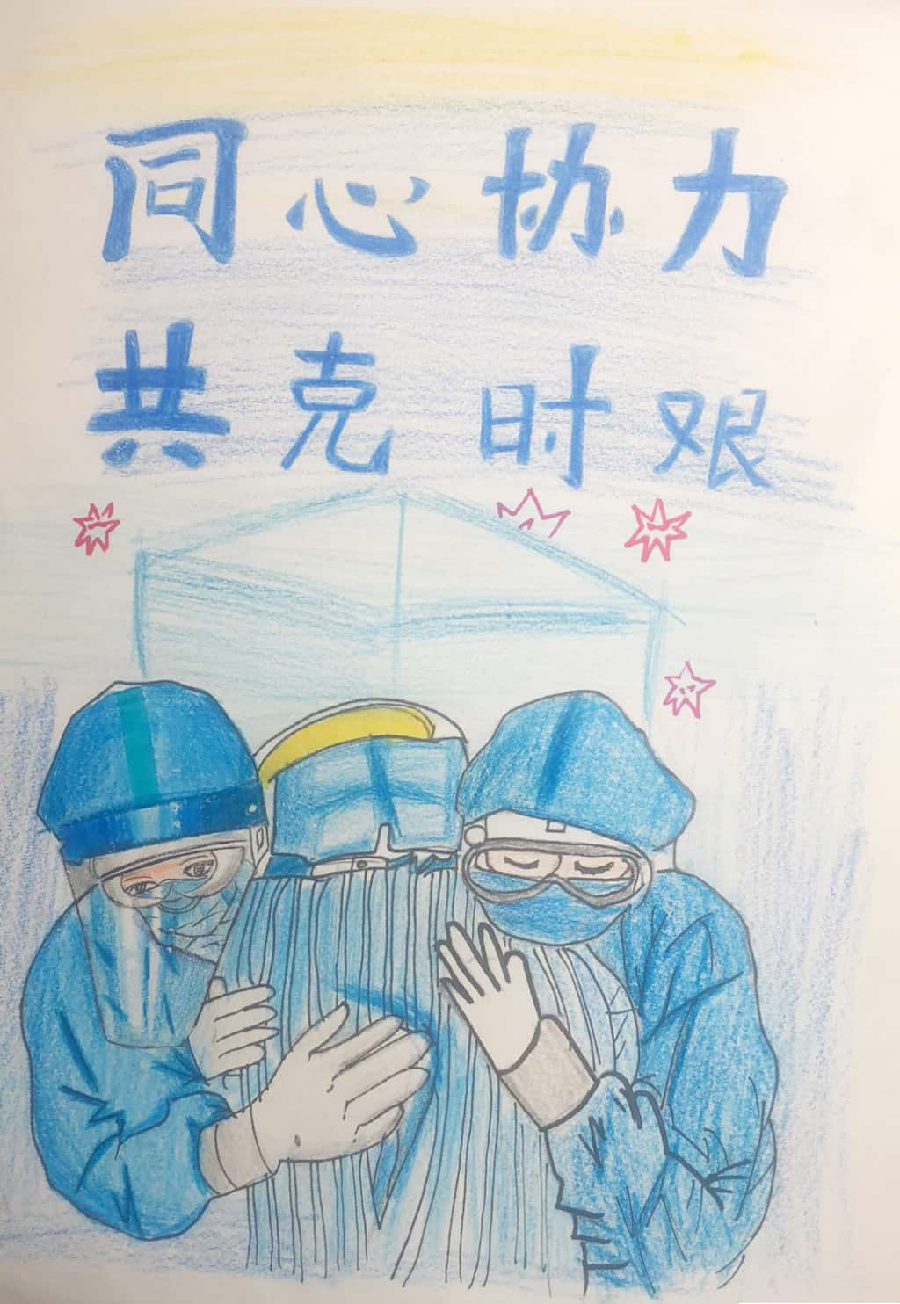 同心协力
共克时艰